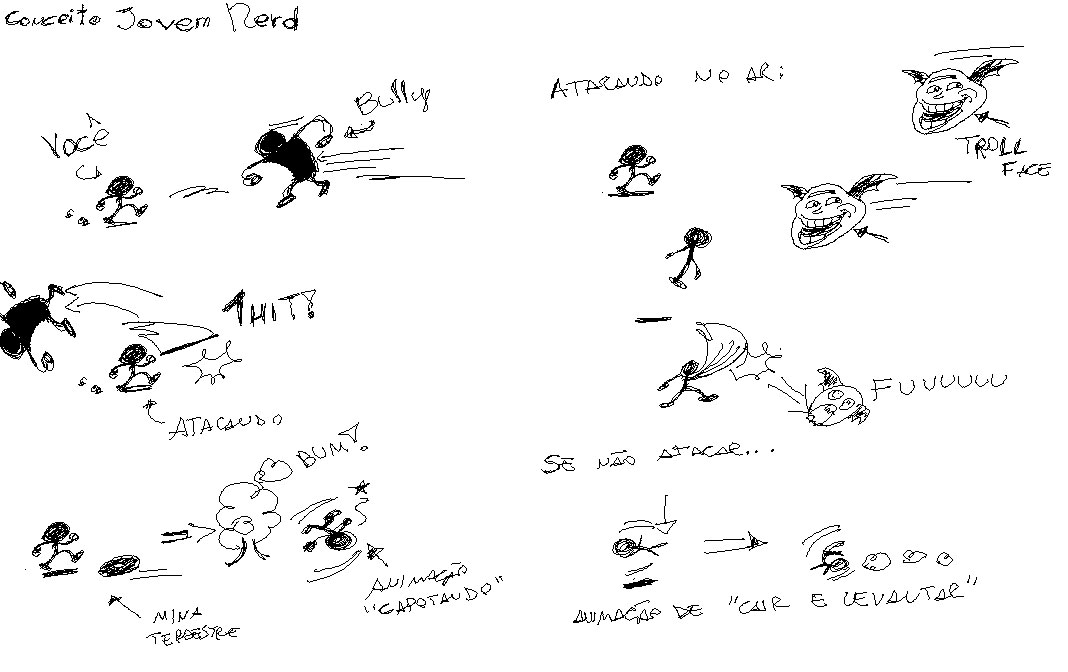 Conceito Jovem Nerd
Você
Bully
1 HIT!
ATACANDO
BUM!
MINA
TERRESTRE
ANIMAÇÃO
"CAPOTANDO"
ATACANDO NO AR:
TROLL
FACE
FUUUUUU
SE NÃO ATACAR...
ANIMAÇÃO DE "CAIR E LEVANTAR"